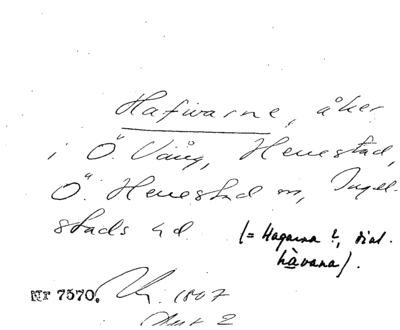 Hafwarne, åker
i Ö. Vång, Henestad,
Ö. Henestad sn, Ingel-
stads hd. (= Hagarna?, dial.
håvana).
Nr 7570. 1807
Akt 2